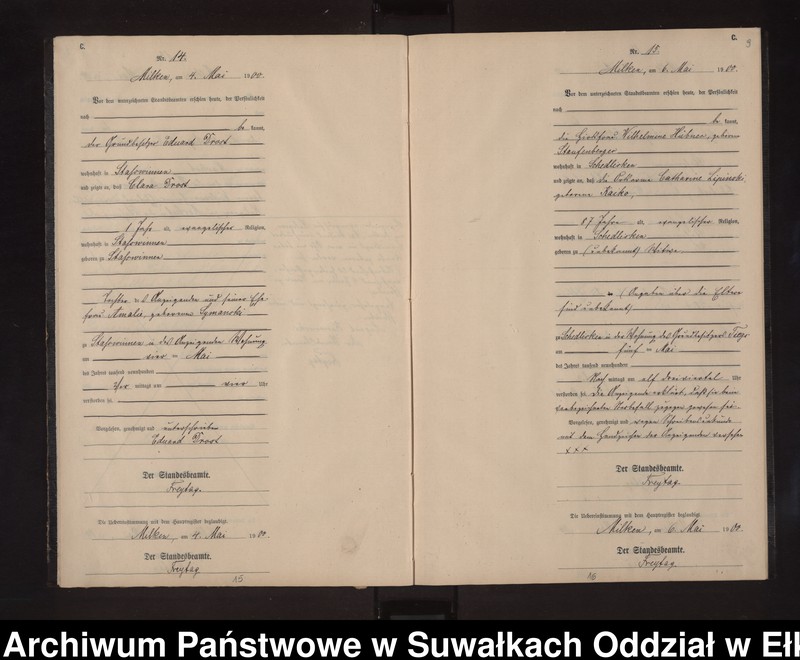 C.
Nr. 14.
Milken, am 4. Mai 1900.
Vor dem unterzeichneten Standesbeamten erschien heute, der Persönlichkeit
nach
be kannt,
der Grundbesitzer Eduard Trost
wohnhaft in Staßwinnen
und zeigte an, daß Clara Trost
1 Jahr alt, evangelischer Religion,
wohnhaft in Staßwinnen
geboren zu Staßwinnen
Tochter des Anzeigenden und seiner Ehe
frau Amalie, geborenen Symanski
zu Staßwinnen in des Anzeigenden Wohnung
am vier ten Mai
des Jahres tausend neunhundert
Vor mittags um vier Uhr
verstorben sei.
Vorgelesen, genehmigt und unterschrieben
Eduard Trost
Der Standesbeamte.
Freytag.
Die Uebereinstimmung mit dem Hauptregister beglaubigt.
Milken, am 4. Mai 1900.
Der Standesbeamte.
Freytag
15
C.
9
Nr. 15.
Milken, am 6. Mai 1900.
Vor dem unterzeichneten Standesbeamten erschien heute, der Persönlichkeit
nach
be kannt,
die Wilhelmine Hübner, geborene
Staufenberger
wohnhaft in Schedlisken
und zeigte an, daß die Catharine Lipinski
geborene Razko,
87 Jahre alt, evangelischer Religion,
wohnhaft in Schedlisken
geboren zu (unbekannt) Witwe
(Angaben über die Eltern
sind unbekannt)
zu Schedlisken in der Wohnung des Grundbesitzers
am fünf ten Mai
des Jahres tausend neunhundert
Nach mittags um elf dreiviertel Uhr
verstorben sei. Die Anzeigende erklärt, daß sie beim
vorbezeichneten Sterbefall zugegen gewesen sei.
Vorgelesen, genehmigt und wegen Schreibensunkunde
mit dem Handzeichen der Anzeigenden versehen
x x x
Der Standesbeamte.
Freytag.
Die Uebereinstimmung mit dem Hauptregister beglaubigt.
Milken, am 6. Mai 1900.
Der Standesbeamte.
Freytag.
16
Archiwum Państwowe w Suwałkach Oddział w Ełk